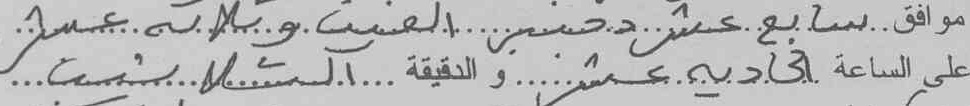 موافق سابع عشر دجنبر الفين و ثلاثة عشر
على الساعة الحادية عشر و الدقيقة الثلاثين